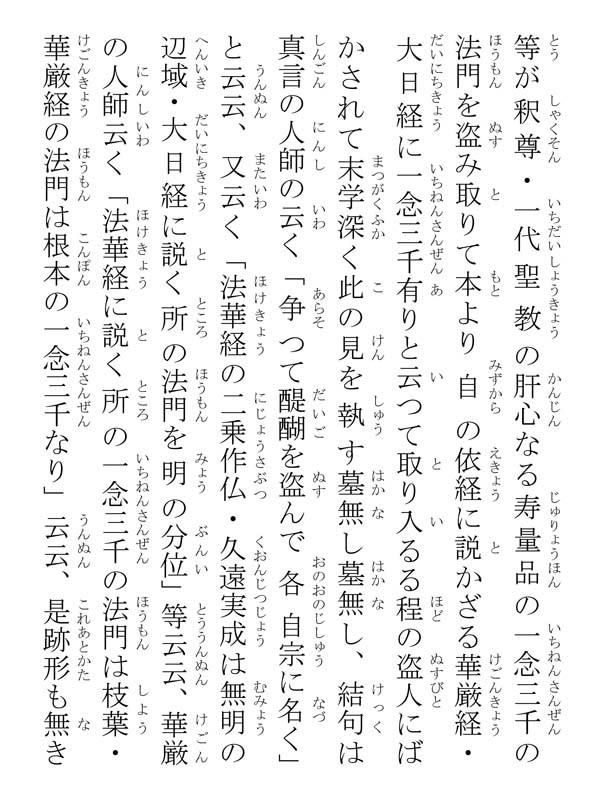 等が釈尊・一代聖教の肝心なる寿量品の一念三千の
法門を盗み取りて本より自の依経に説かざる華厳経・
大日経に一念三千有りと云つて取り入るる程の盗人にば
かされて末学深く此の見を執す墓無し墓無し、結句は
真言の人師の云く「争つて醍醐を盗んで各自宗に名く」
と云云、又云く「法華経の二乗作仏・久遠実成は無明の
辺域・大日経に説く所の法門を明の分位」等云云、華厳
の人師云く「法華経に説く所の一念三千の法門は枝葉・
華厳経の法門は根本の一念三千なり」云云、是跡形も無き